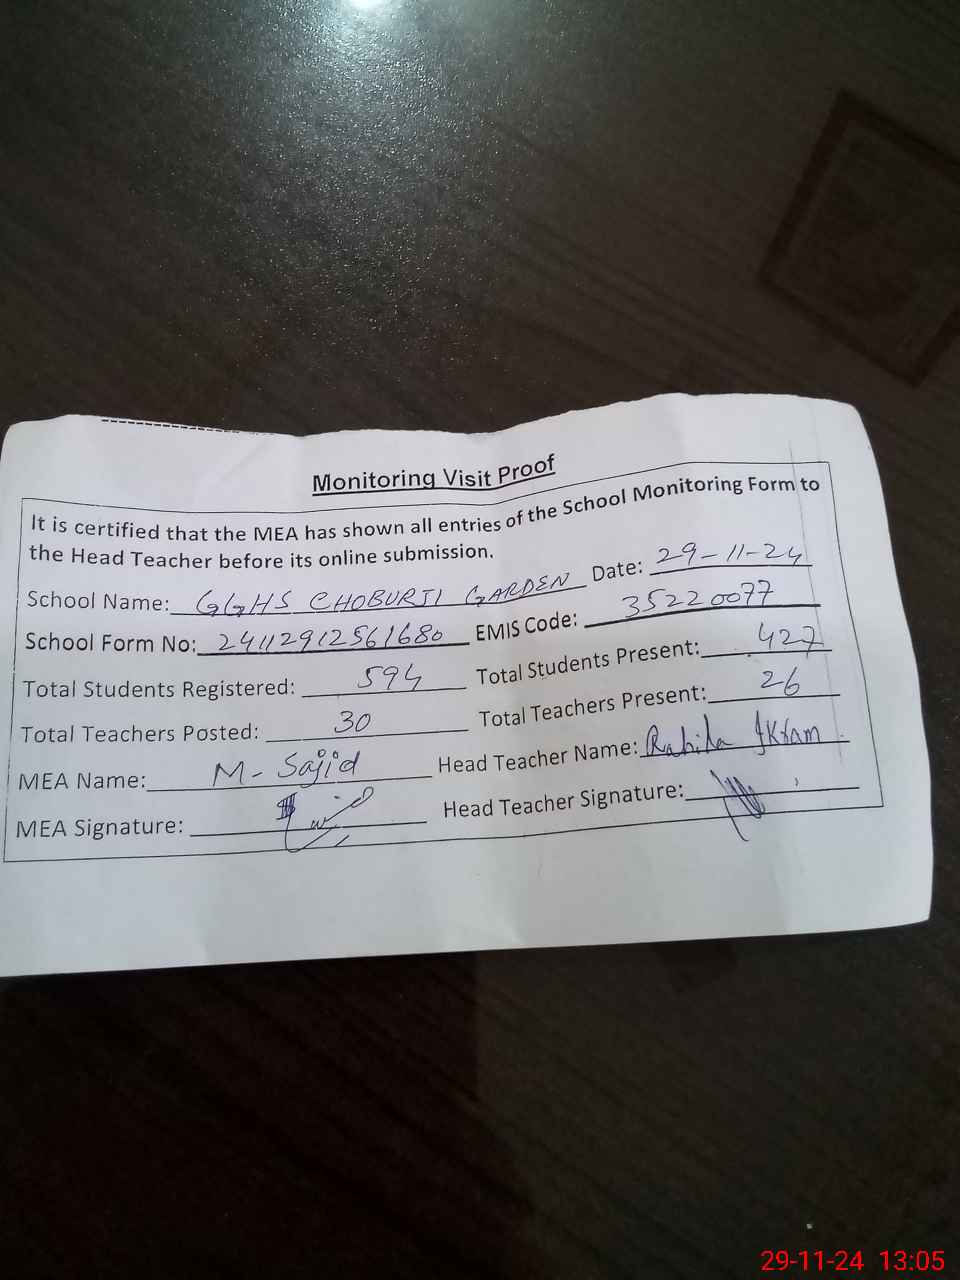 Monitoring Visit Proof
It is certified that the MEA has shown all entries of the School Monitoring Form to
the Head Teacher before its online submission.
School Name: GGHS CHOBURJI GARDEN Date: 29-11-24
School Form No: 24112912561680 EMIS Code: 35220077
Total Students Registered: 594 Total Students Present: 427
Total Teachers Posted: 30 Total Teachers Present: 26
MEA Name: M-Sajid Head Teacher Name: Rahila Ikram
MEA Signature: Head Teacher Signature:
29-11-24 13:05